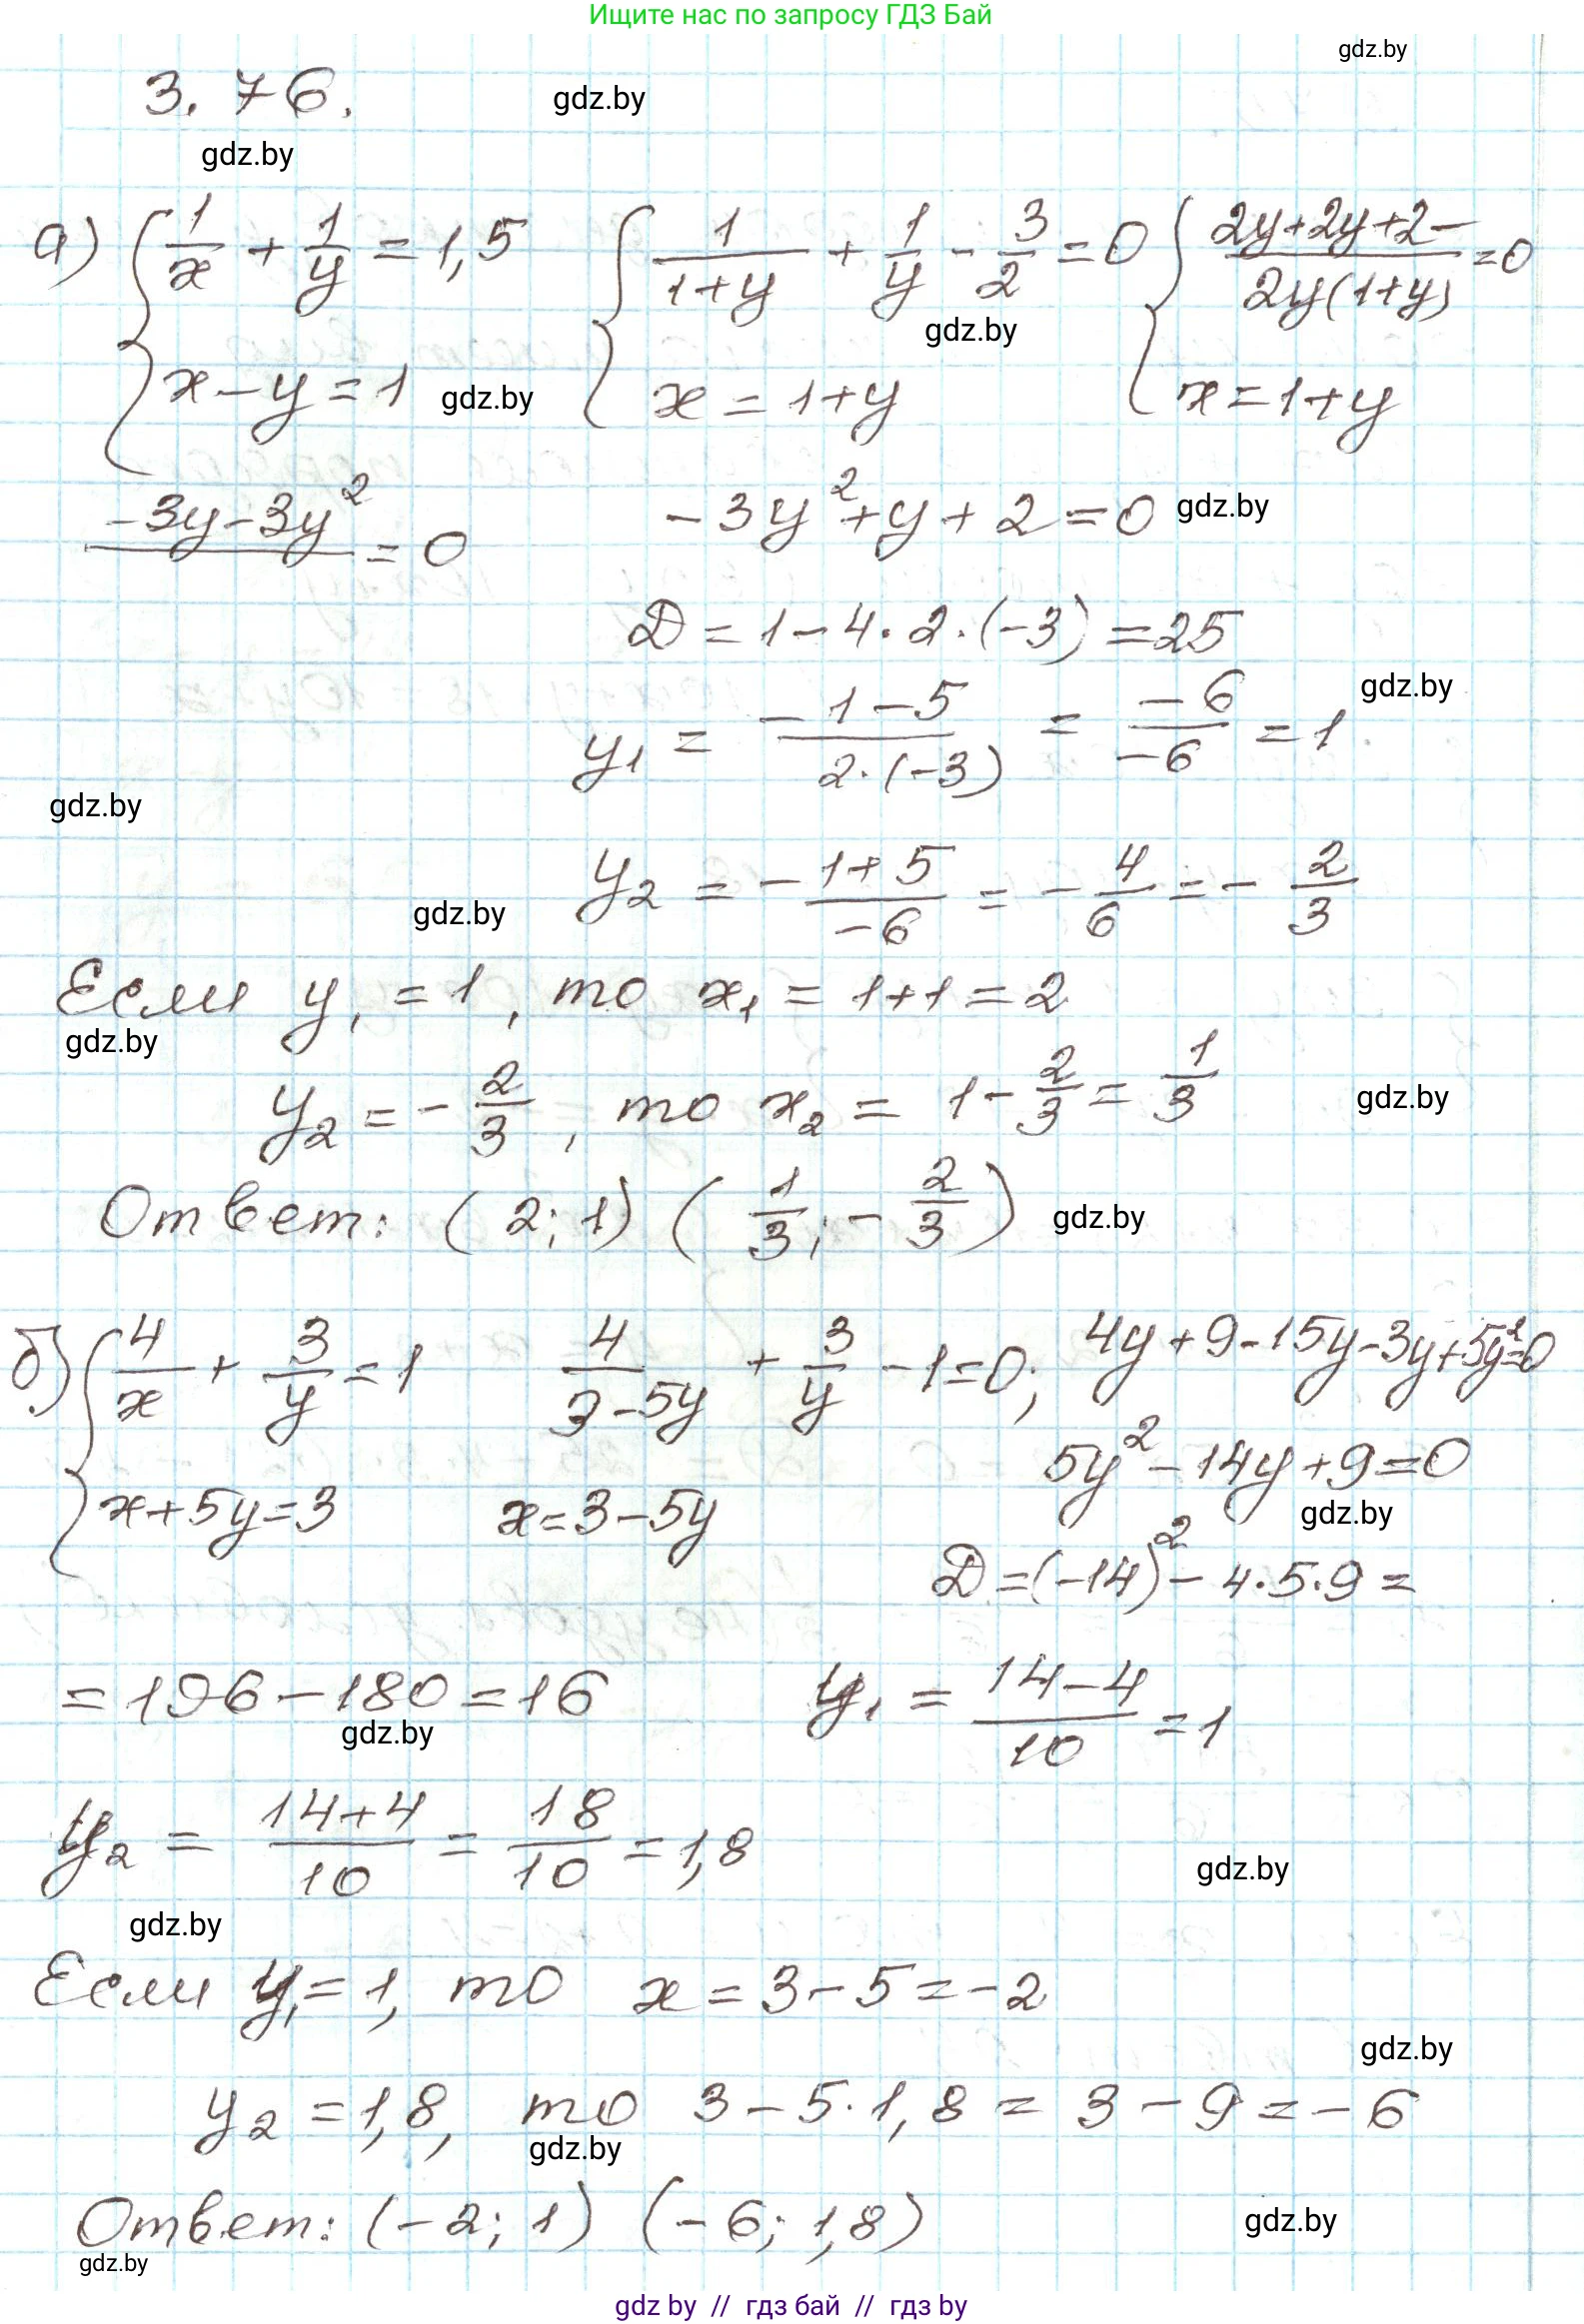 Ищите нас по запросу ГДЗ Бай
gdz.by
3.76.
gdz.by
gdz.by
а) { 1/x + 1/y = 1,5   { 1/(1+y) + 1/y - 3/2 = 0   { (2y+2y+2-)/(2y(1+y)) = 0
gdz.by
x - y = 1   x = 1+y   x = 1+y
gdz.by
-3y-3y² = 0   -3y²+y+2=0
gdz.by
D = 1-4·2·(-3) = 25
gdz.by
y₁ = (-1-5)/(2·(-3)) = -6/-6 = 1
gdz.by
y₂ = -(1+5)/-6 = -4/6 = -2/3
gdz.by
Если y₁ = 1, то x₁ = 1+1 = 2
gdz.by
y₂ = -2/3, то x₂ = 1 - 2/3 = 1/3
gdz.by
Ответ: (2; 1) (1/3; -2/3)
gdz.by
б) { 4/x + 3/y = 1   4/(3-5y) + 3/y - 1 = 0;   4y+9-15y-3y+5y²=0
5y²-14y+9=0
gdz.by
x+5y=3   x=3-5y
D=(-14)²-4·5·9=
=196-180=16   y₁ = (14-4)/10 = 1
gdz.by
y₂ = (14+4)/10 = 18/10 = 1,8
gdz.by
gdz.by
Если y₁=1, то x=3-5=-2
gdz.by
y₂=1,8, то 3-5·1,8=3-9=-6
gdz.by
Ответ: (-2; 1) (-6; 1,8)
gdz.by
gdz.by
gdz by // гдз бай // гдз by